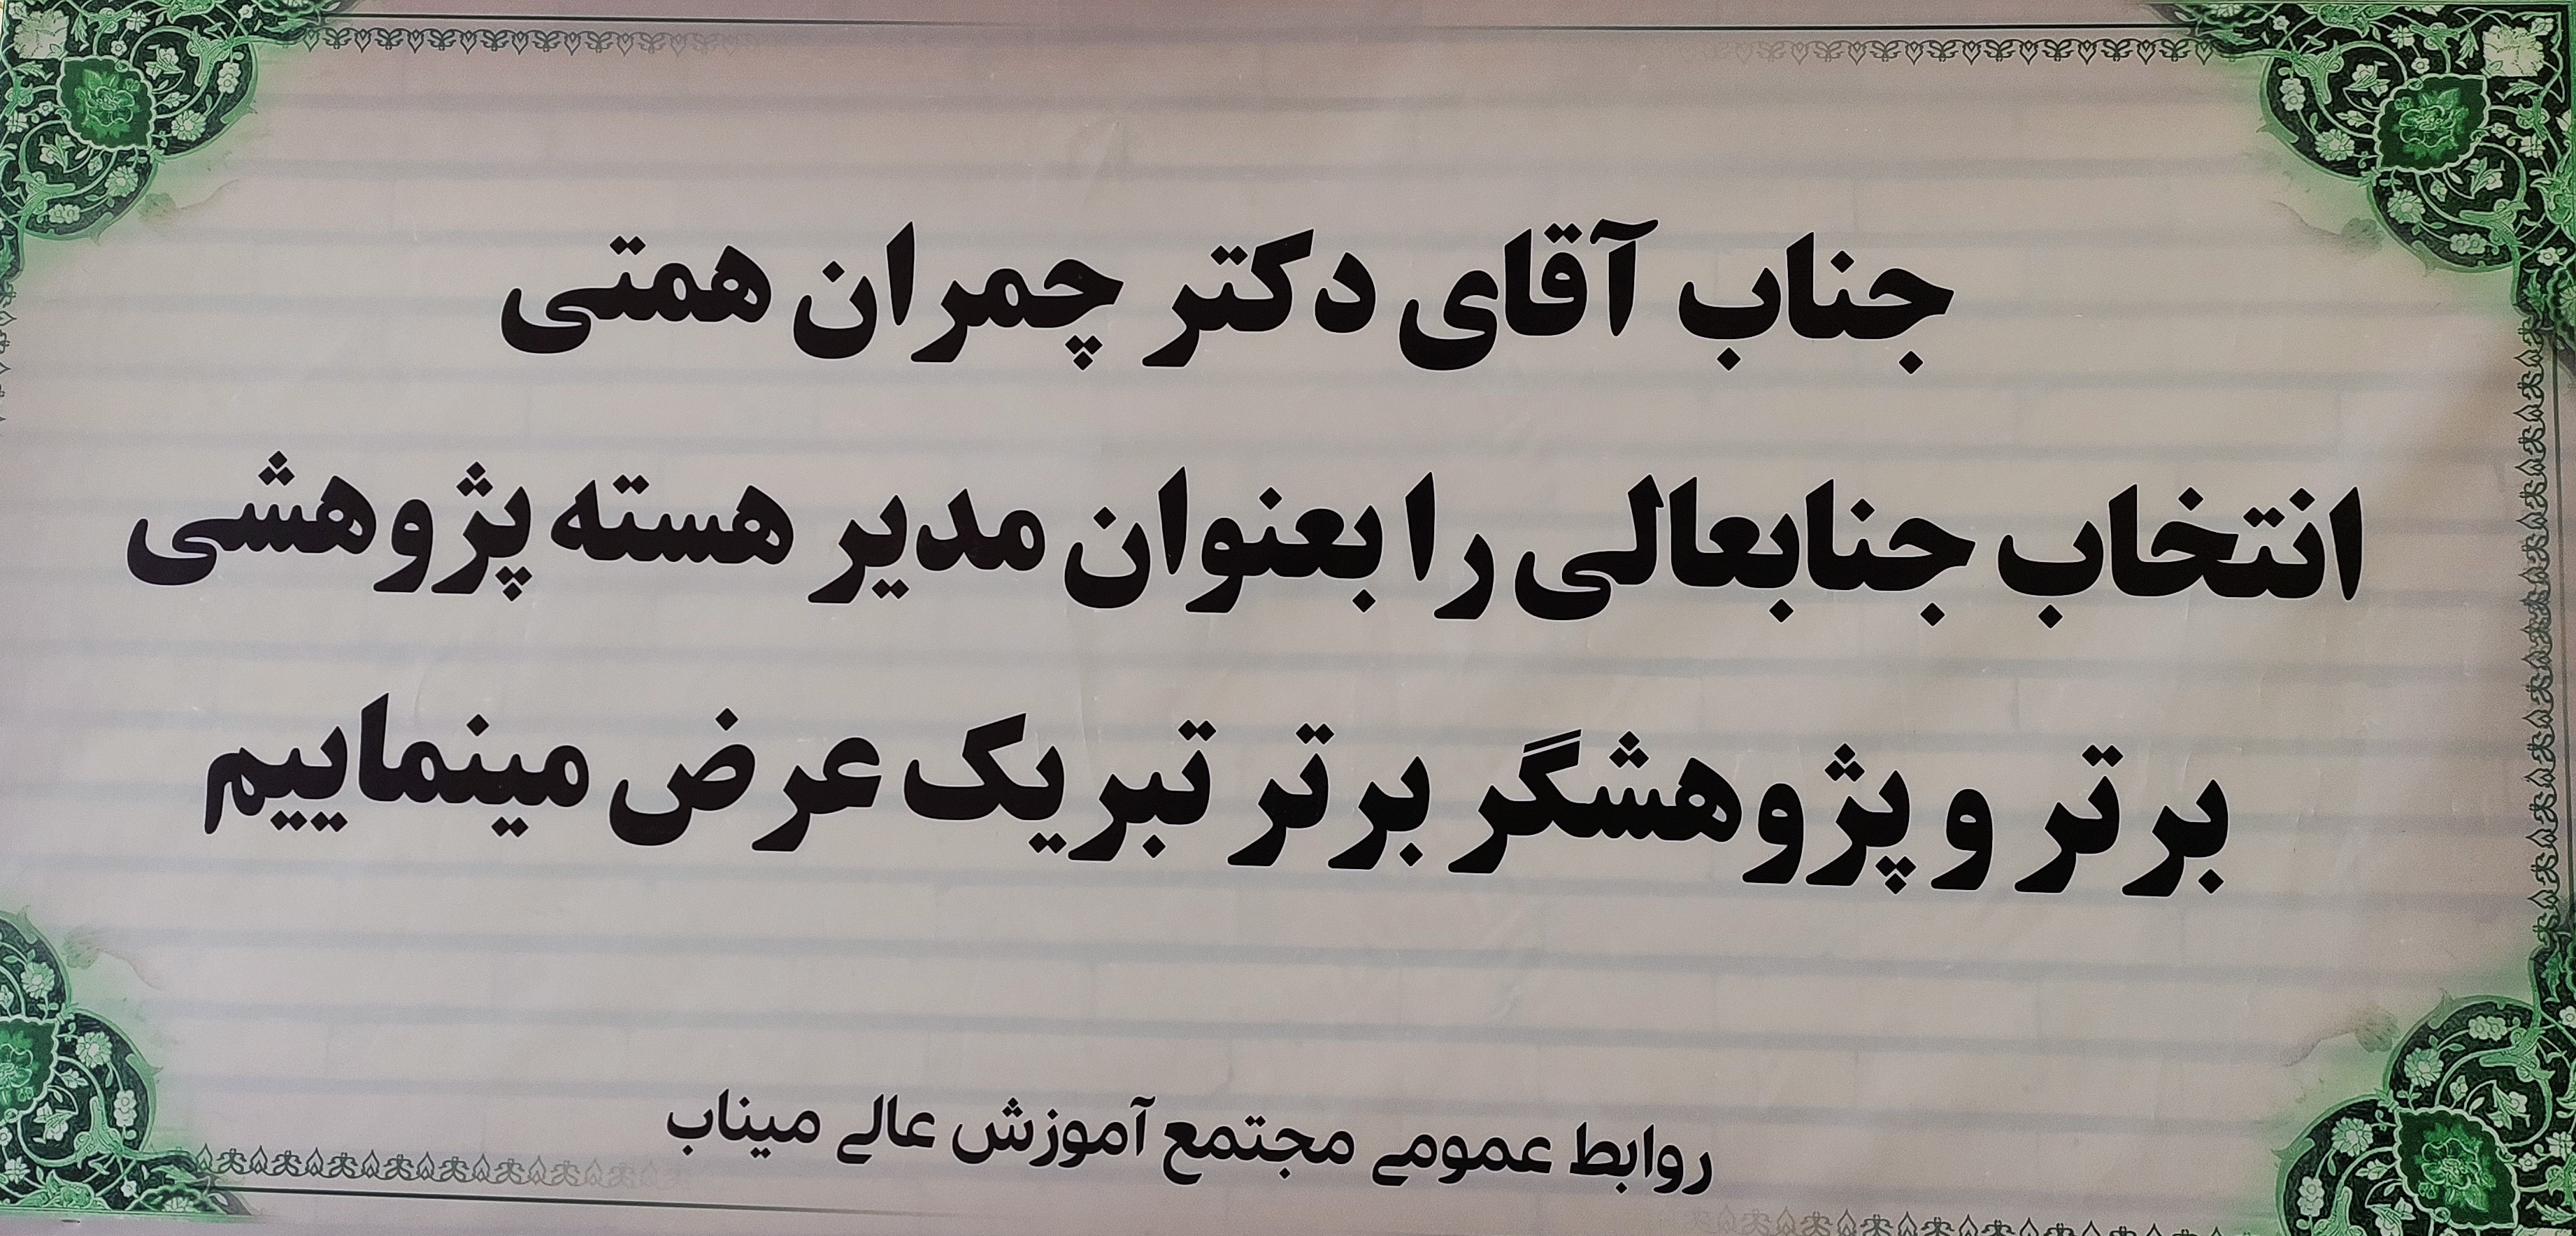 جناب آقای دکتر چمران همتی
انتخاب جنابعالی را بعنوان مدیر هسته پژوهشی
برتر و پژوهشگر برتر تبریک عرض مینماییم
روابط عمومی مجتمع آموزش عالی میناب